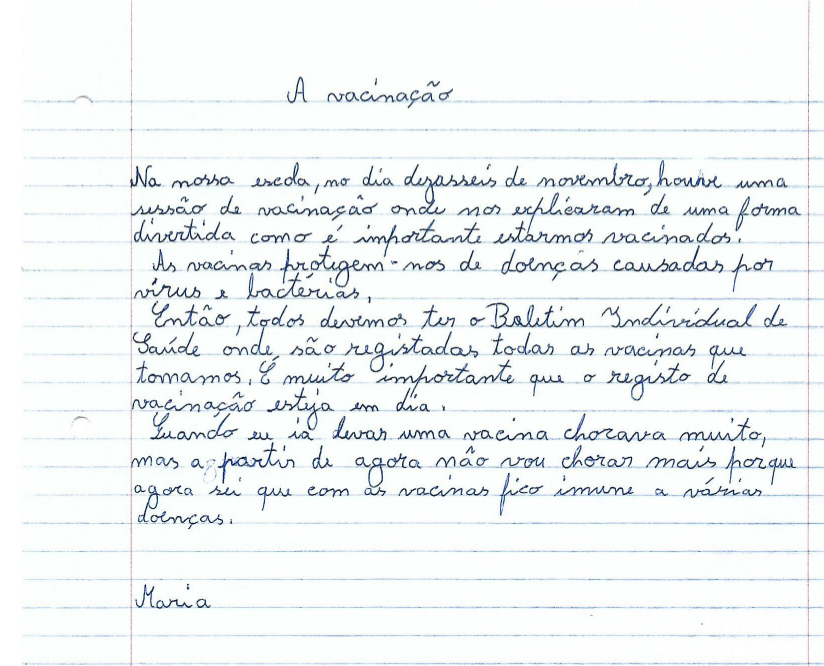 A vacinação
Na nossa escola, no dia dezasseis de novembro, houve uma
sessão de vacinação onde nos explicaram de uma forma
divertida como é importante estarmos vacinados.
As vacinas protegem-nos de doenças causadas por
vírus e bactérias.
Então, todos devemos ter o Boletim Individual de
Saúde onde são registadas todas as vacinas que
tomamos. É muito importante que o registo de
vacinação esteja em dia.
Quando eu ia levar uma vacina chorava muito,
mas a partir de agora não vou chorar mais porque
agora sei que com as vacinas fico imune a várias
doenças.
Maria